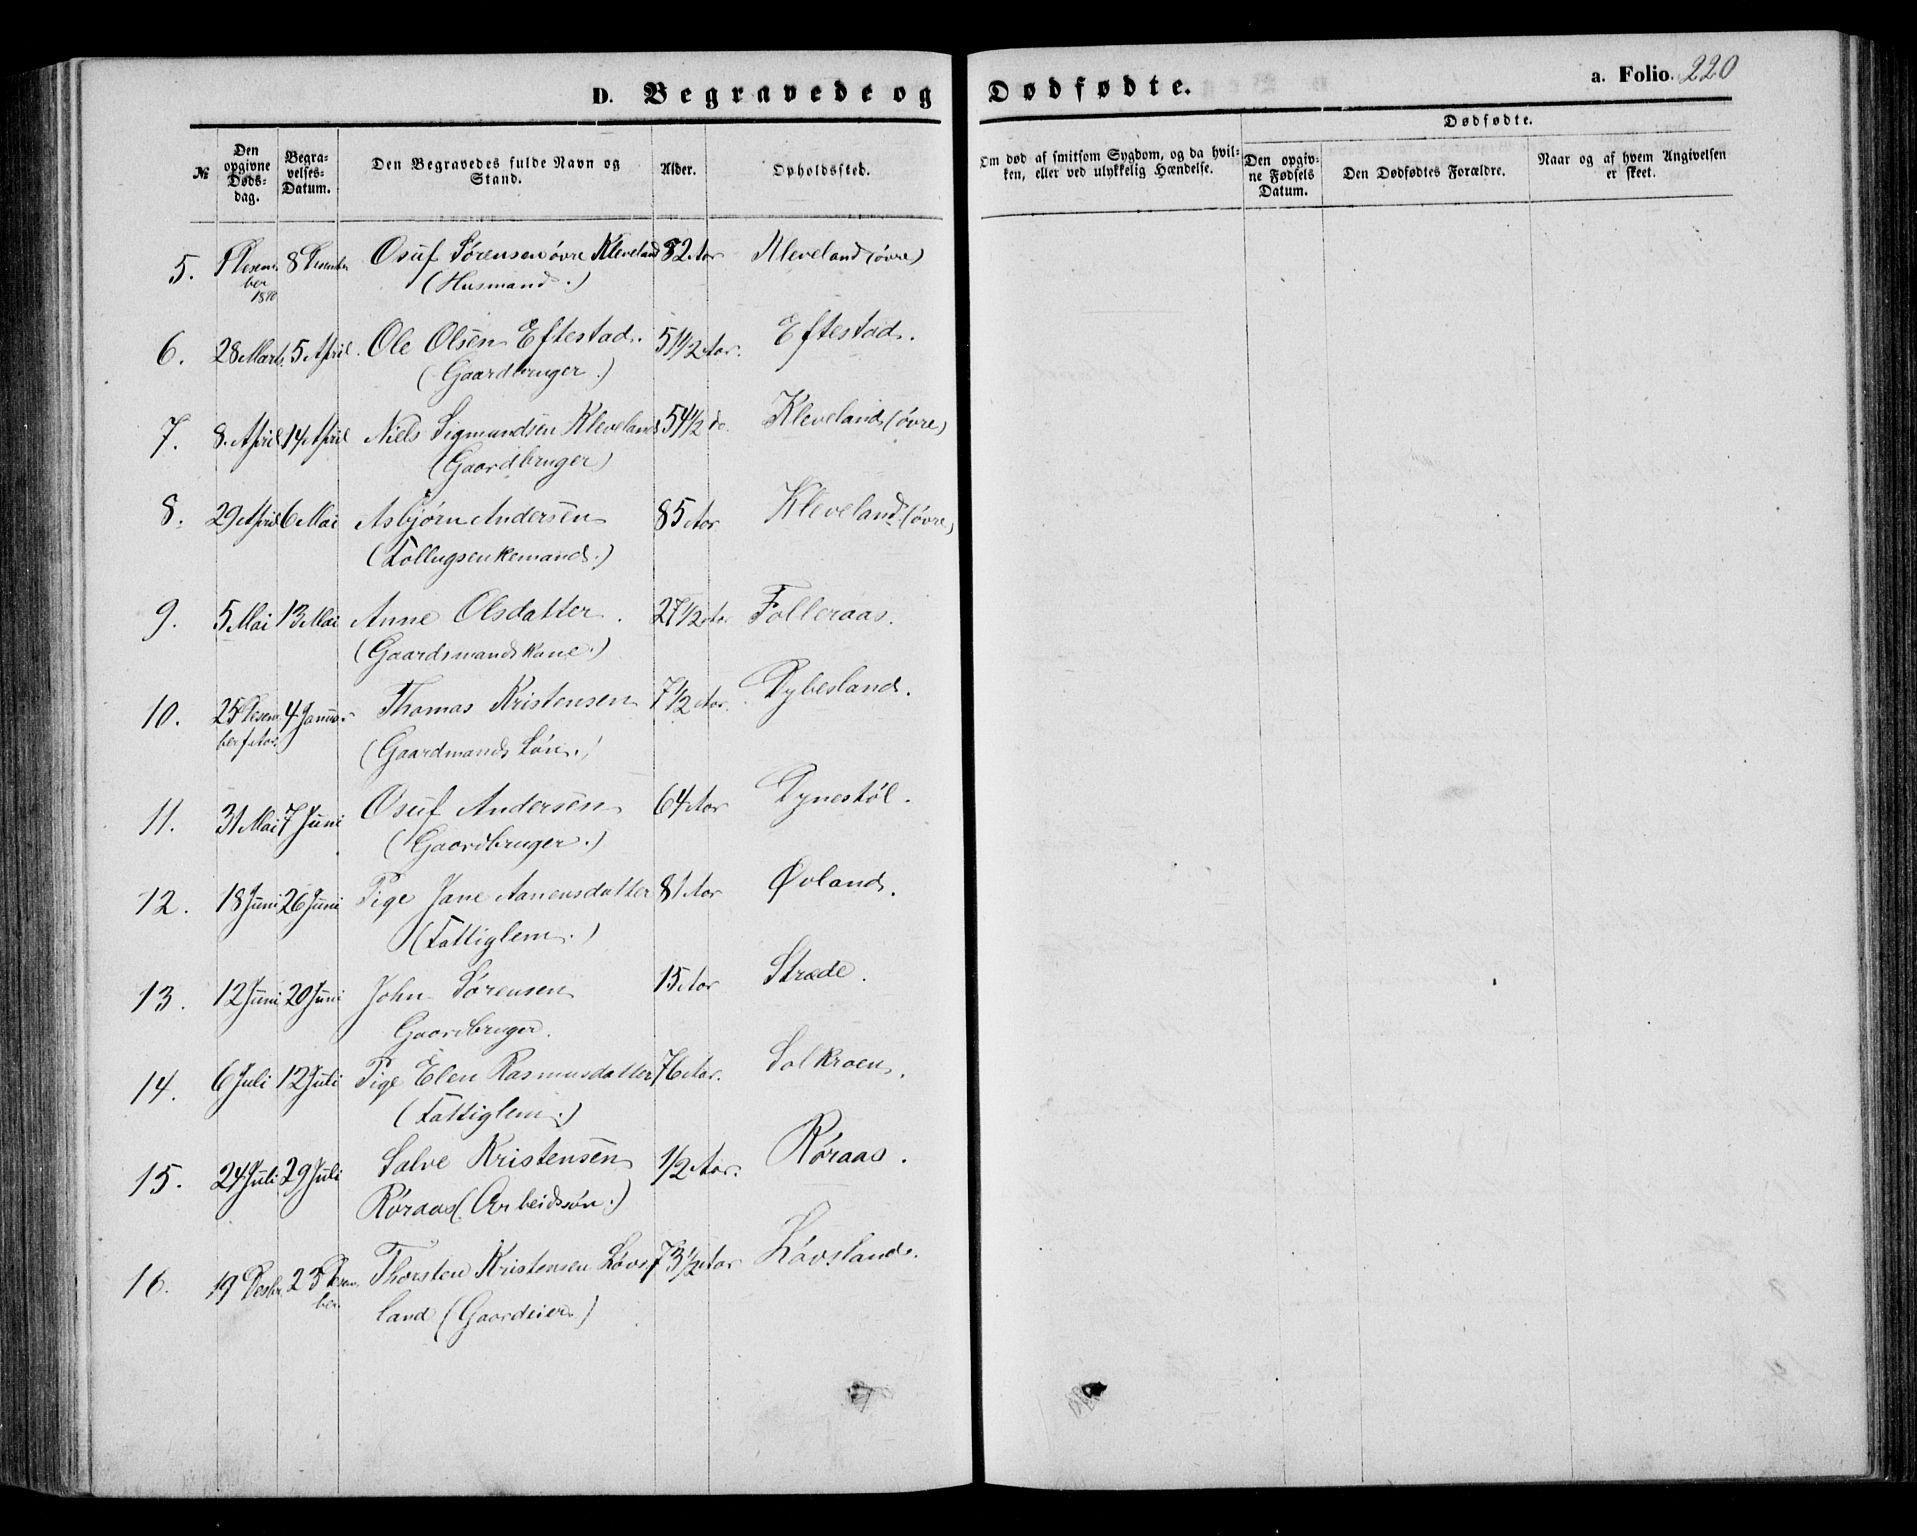 D. Begravede og Dødfødte.
a. Folio. 220
№
Den opgivne Døds-dag.
Begra-velses-Datum.
Den Begravedes fulde Navn og Stand.
Alder.
Opholdssted.
Om død af smitsom Sygdom, og da hvil-ken, eller ved ulykkelig Hændelse.
Dødfødte.
Den opgiv-ne Fødsels Datum.
Den Dødfødtes Forældre.
Naar og af hvem Angivelsen er skeet.
5. 1 Desem- 8 Desember Osuf Sørensen øvre Kleveland 82 Aar Kleveland (øvre)
ber (Husmand.)
18
6. 28 Marts 5 April. Ole Olsen Eftestad. 51 1/2 Aar. Eftestad.
(Gaardbruger.)
7. 8. April 14 April Niels Sigmundsen Kleveland 54 1/2 do. Kleveland (øvre)
(Gaardbruger)
8. 29 April 6 Mai Asbjørn Andersen 85 Aar Kleveland (øvre)
(Follugsenkemand.)
9. 5 Mai 13 Mai Anne Olsdatter. 27 1/2 Aar Folleraas.
(Gaardsmandskone.)
10. 25 Desem- 4 Januar Thomas Kristensen 7 1/2 Aar. Dybesland.
ber f. Aar. (Gaardmands Søn.)
11. 31 Mai 7 Juni Osuf Andersen 64 Aar Dynestøl.
(Gaardbruger.)
12. 18 Juni 26 Juni Pige Jane Aanensdatter 81 Aar Øvland.
(Fattiglem.)
13. 12 Juni 20 Juni John Sørensen 15 Aar Stræde.
Gaardbruger.
14. 6 Juli 12 Juli Pige Elen Rasmusdatter 76 Aar. Salkraen.
(Fattiglem.)
15. 24 Juli 29 Juli Salve Kristensen 1/2 Aar. Røraas.
Røraas (Arbeidssøn.)
16. 19 Desbr. 23 Desem- Thorsten Kristensen Løvs- 73 1/2 Aar Løvsland.
ber land (Gaardeier)